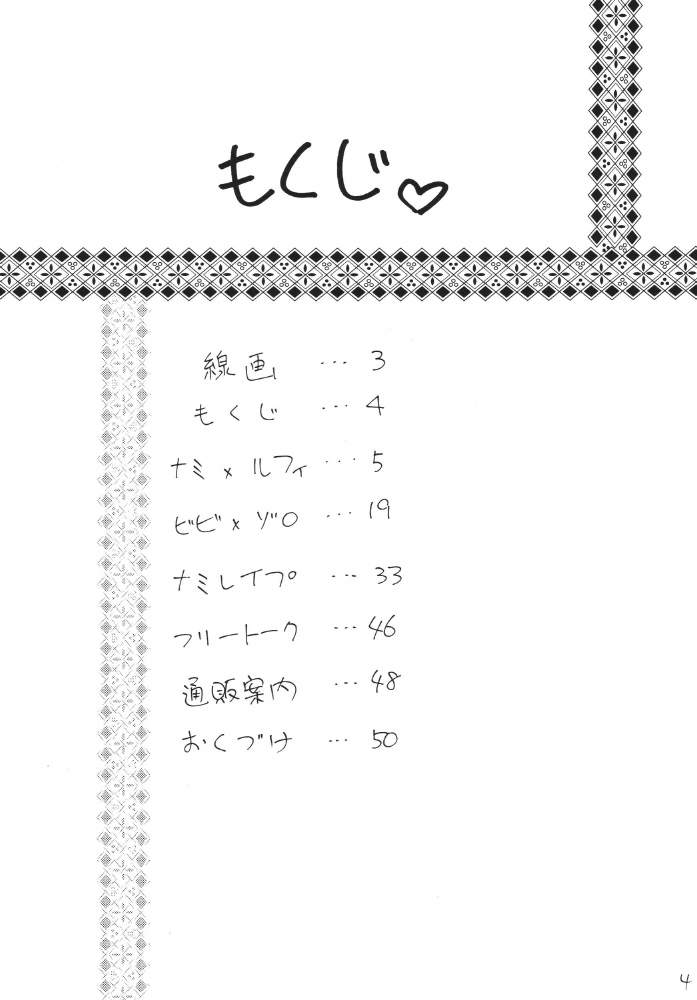 もくじ♡
線画 … 3
もくじ … 4
ナミ×ルフィ … 5
ビビ×ゾロ … 19
ナミレイプ … 33
フリートーク … 46
通販案内 … 48
おくづけ … 50
4